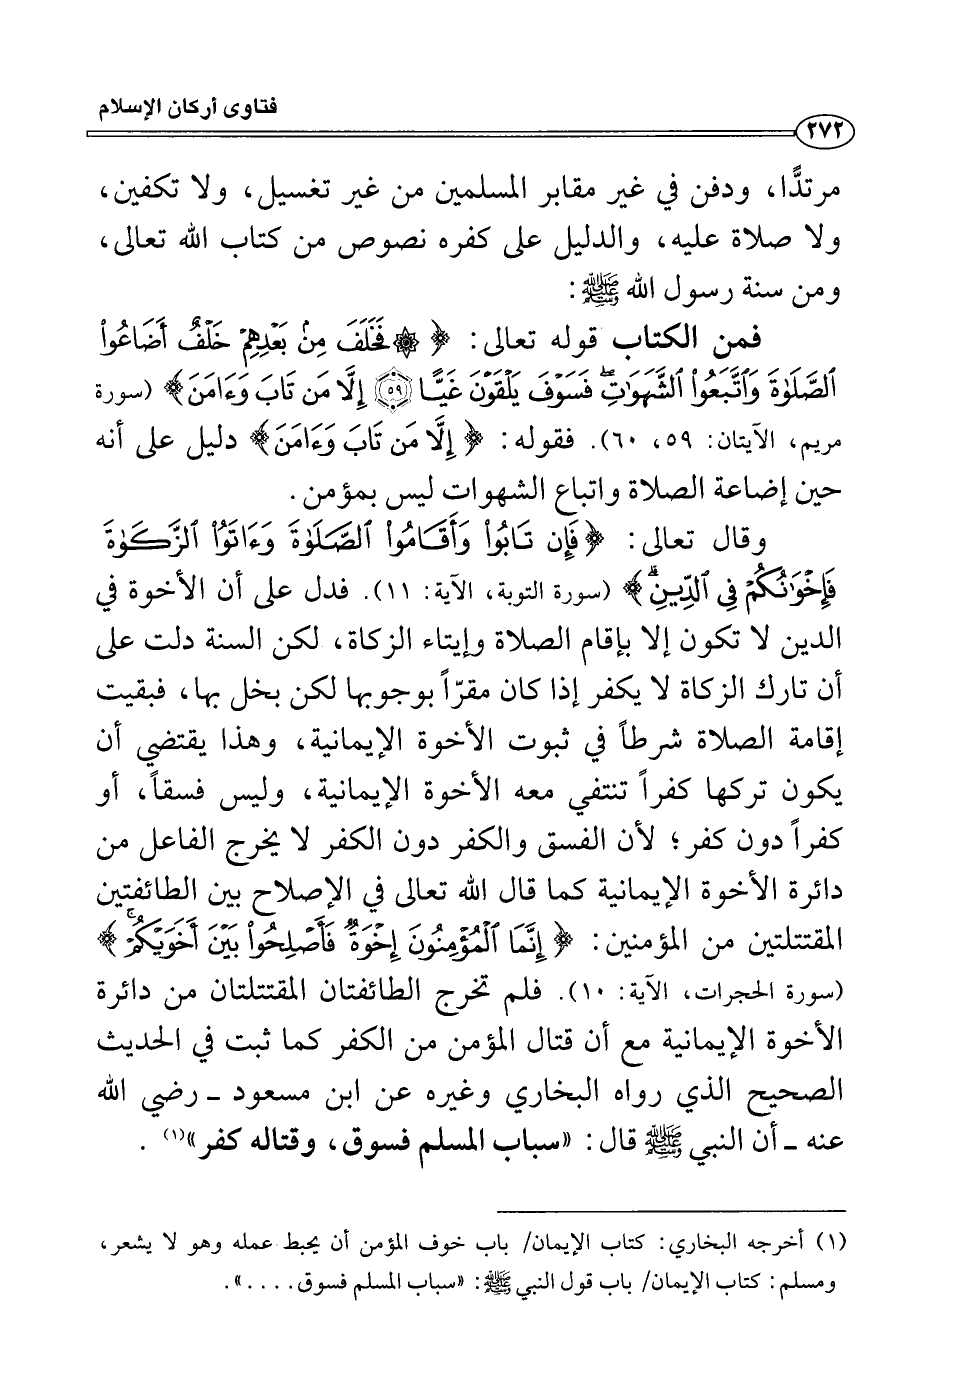 فتاوى أركان الإسلام
٢٧٢
مرتدًّا، ودفن في غير مقابر المسلمين من غير تغسيل، ولا تكفين،
ولا صلاة عليه، والدليل على كفره نصوص من كتاب الله تعالى،
ومن سنة رسول الله ﷺ:
فمن الكتاب قوله تعالى: ﴿ ۞ فَخَلَفَ مِنۢ بَعْدِهِمْ خَلْفٌ أَضَاعُوا۟
ٱلصَّلَوٰةَ وَٱتَّبَعُوا۟ ٱلشَّهَوَٰتِ ۖ فَسَوْفَ يَلْقَوْنَ غَيًّا ﴿٥٩﴾ إِلَّا مَن تَابَ وَءَامَنَ﴾ (سورة
مريم، الآيتان: ٥٩، ٦٠). فقوله: ﴿ إِلَّا مَن تَابَ وَءَامَنَ﴾ دليل على أنه
حين إضاعة الصلاة واتباع الشهوات ليس بمؤمن.
وقال تعالى: ﴿فَإِن تَابُوا۟ وَأَقَامُوا۟ ٱلصَّلَوٰةَ وَءَاتَوُا۟ ٱلزَّكَوٰةَ
فَإِخْوَٰنُكُمْ فِى ٱلدِّينِ ۗ﴾ (سورة التوبة، الآية: ١١). فدل على أن الأخوة في
الدين لا تكون إلا بإقام الصلاة وإيتاء الزكاة، لكن السنة دلت على
أن تارك الزكاة لا يكفر إذا كان مقرّاً بوجوبها لكن بخل بها، فبقيت
إقامة الصلاة شرطاً في ثبوت الأخوة الإيمانية، وهذا يقتضي أن
يكون تركها كفراً تنتفي معه الأخوة الإيمانية، وليس فسقاً، أو
كفراً دون كفر؛ لأن الفسق والكفر دون الكفر لا يخرج الفاعل من
دائرة الأخوة الإيمانية كما قال الله تعالى في الإصلاح بين الطائفتين
المقتتلتين من المؤمنين: ﴿ إِنَّمَا ٱلْمُؤْمِنُونَ إِخْوَةٌ فَأَصْلِحُوا۟ بَيْنَ أَخَوَيْكُمْ ۚ﴾
(سورة الحجرات، الآية: ١٠). فلم تخرج الطائفتان المقتتلتان من دائرة
الأخوة الإيمانية مع أن قتال المؤمن من الكفر كما ثبت في الحديث
الصحيح الذي رواه البخاري وغيره عن ابن مسعود ـ رضي الله
عنه ـ أن النبي ﷺ قال: «سباب المسلم فسوق، وقتاله كفر»(١) .
(١) أخرجه البخاري: كتاب الإيمان/ باب خوف المؤمن أن يحبط عمله وهو لا يشعر،
ومسلم: كتاب الإيمان/ باب قول النبي ﷺ: «سباب المسلم فسوق....».